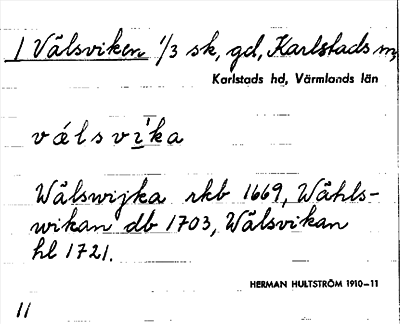 1 Välsviken 1/3 sk, gd, Karlstads m,
Karlstads hd, Värmlands län
vǽlsvìka
Wälswijka rkb 1669, Wähls-
wikan db 1703, Wälsvikan
hl 1721.
HERMAN HULTSTRÖM 1910–11
11